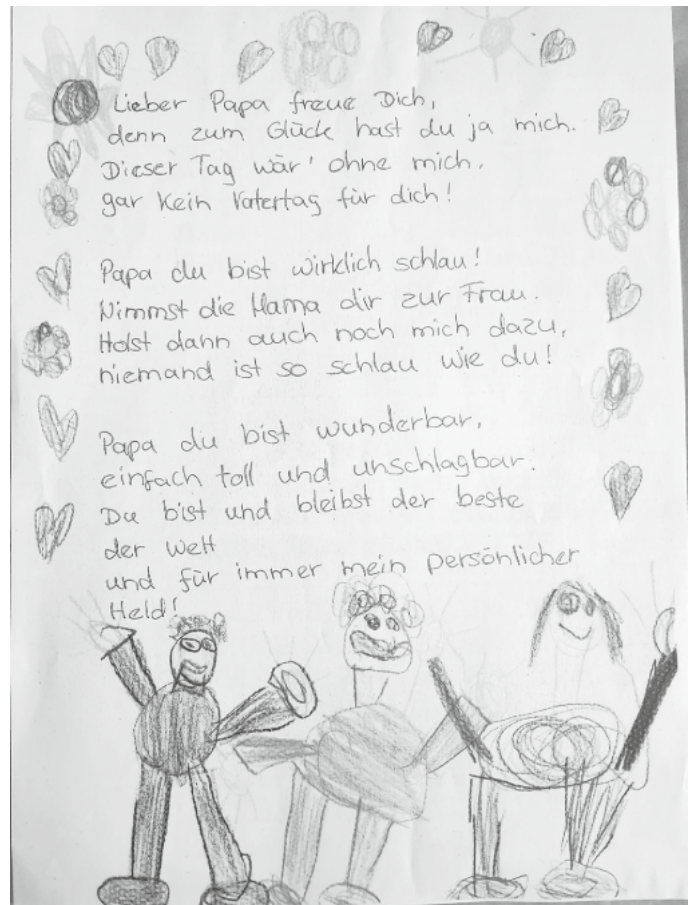 Lieber Papa freue Dich,
denn zum Glück hast du ja mich.
Dieser Tag wär' ohne mich,
gar kein Vatertag für dich!
Papa du bist wirklich schlau!
Nimmst die Mama dir zur Frau.
Holst dann auch noch mich dazu,
niemand ist so schlau wie du!
Papa du bist wunderbar,
einfach toll und unschlagbar!
Du bist und bleibst der beste
der Welt
und für immer mein persönlicher
Held!